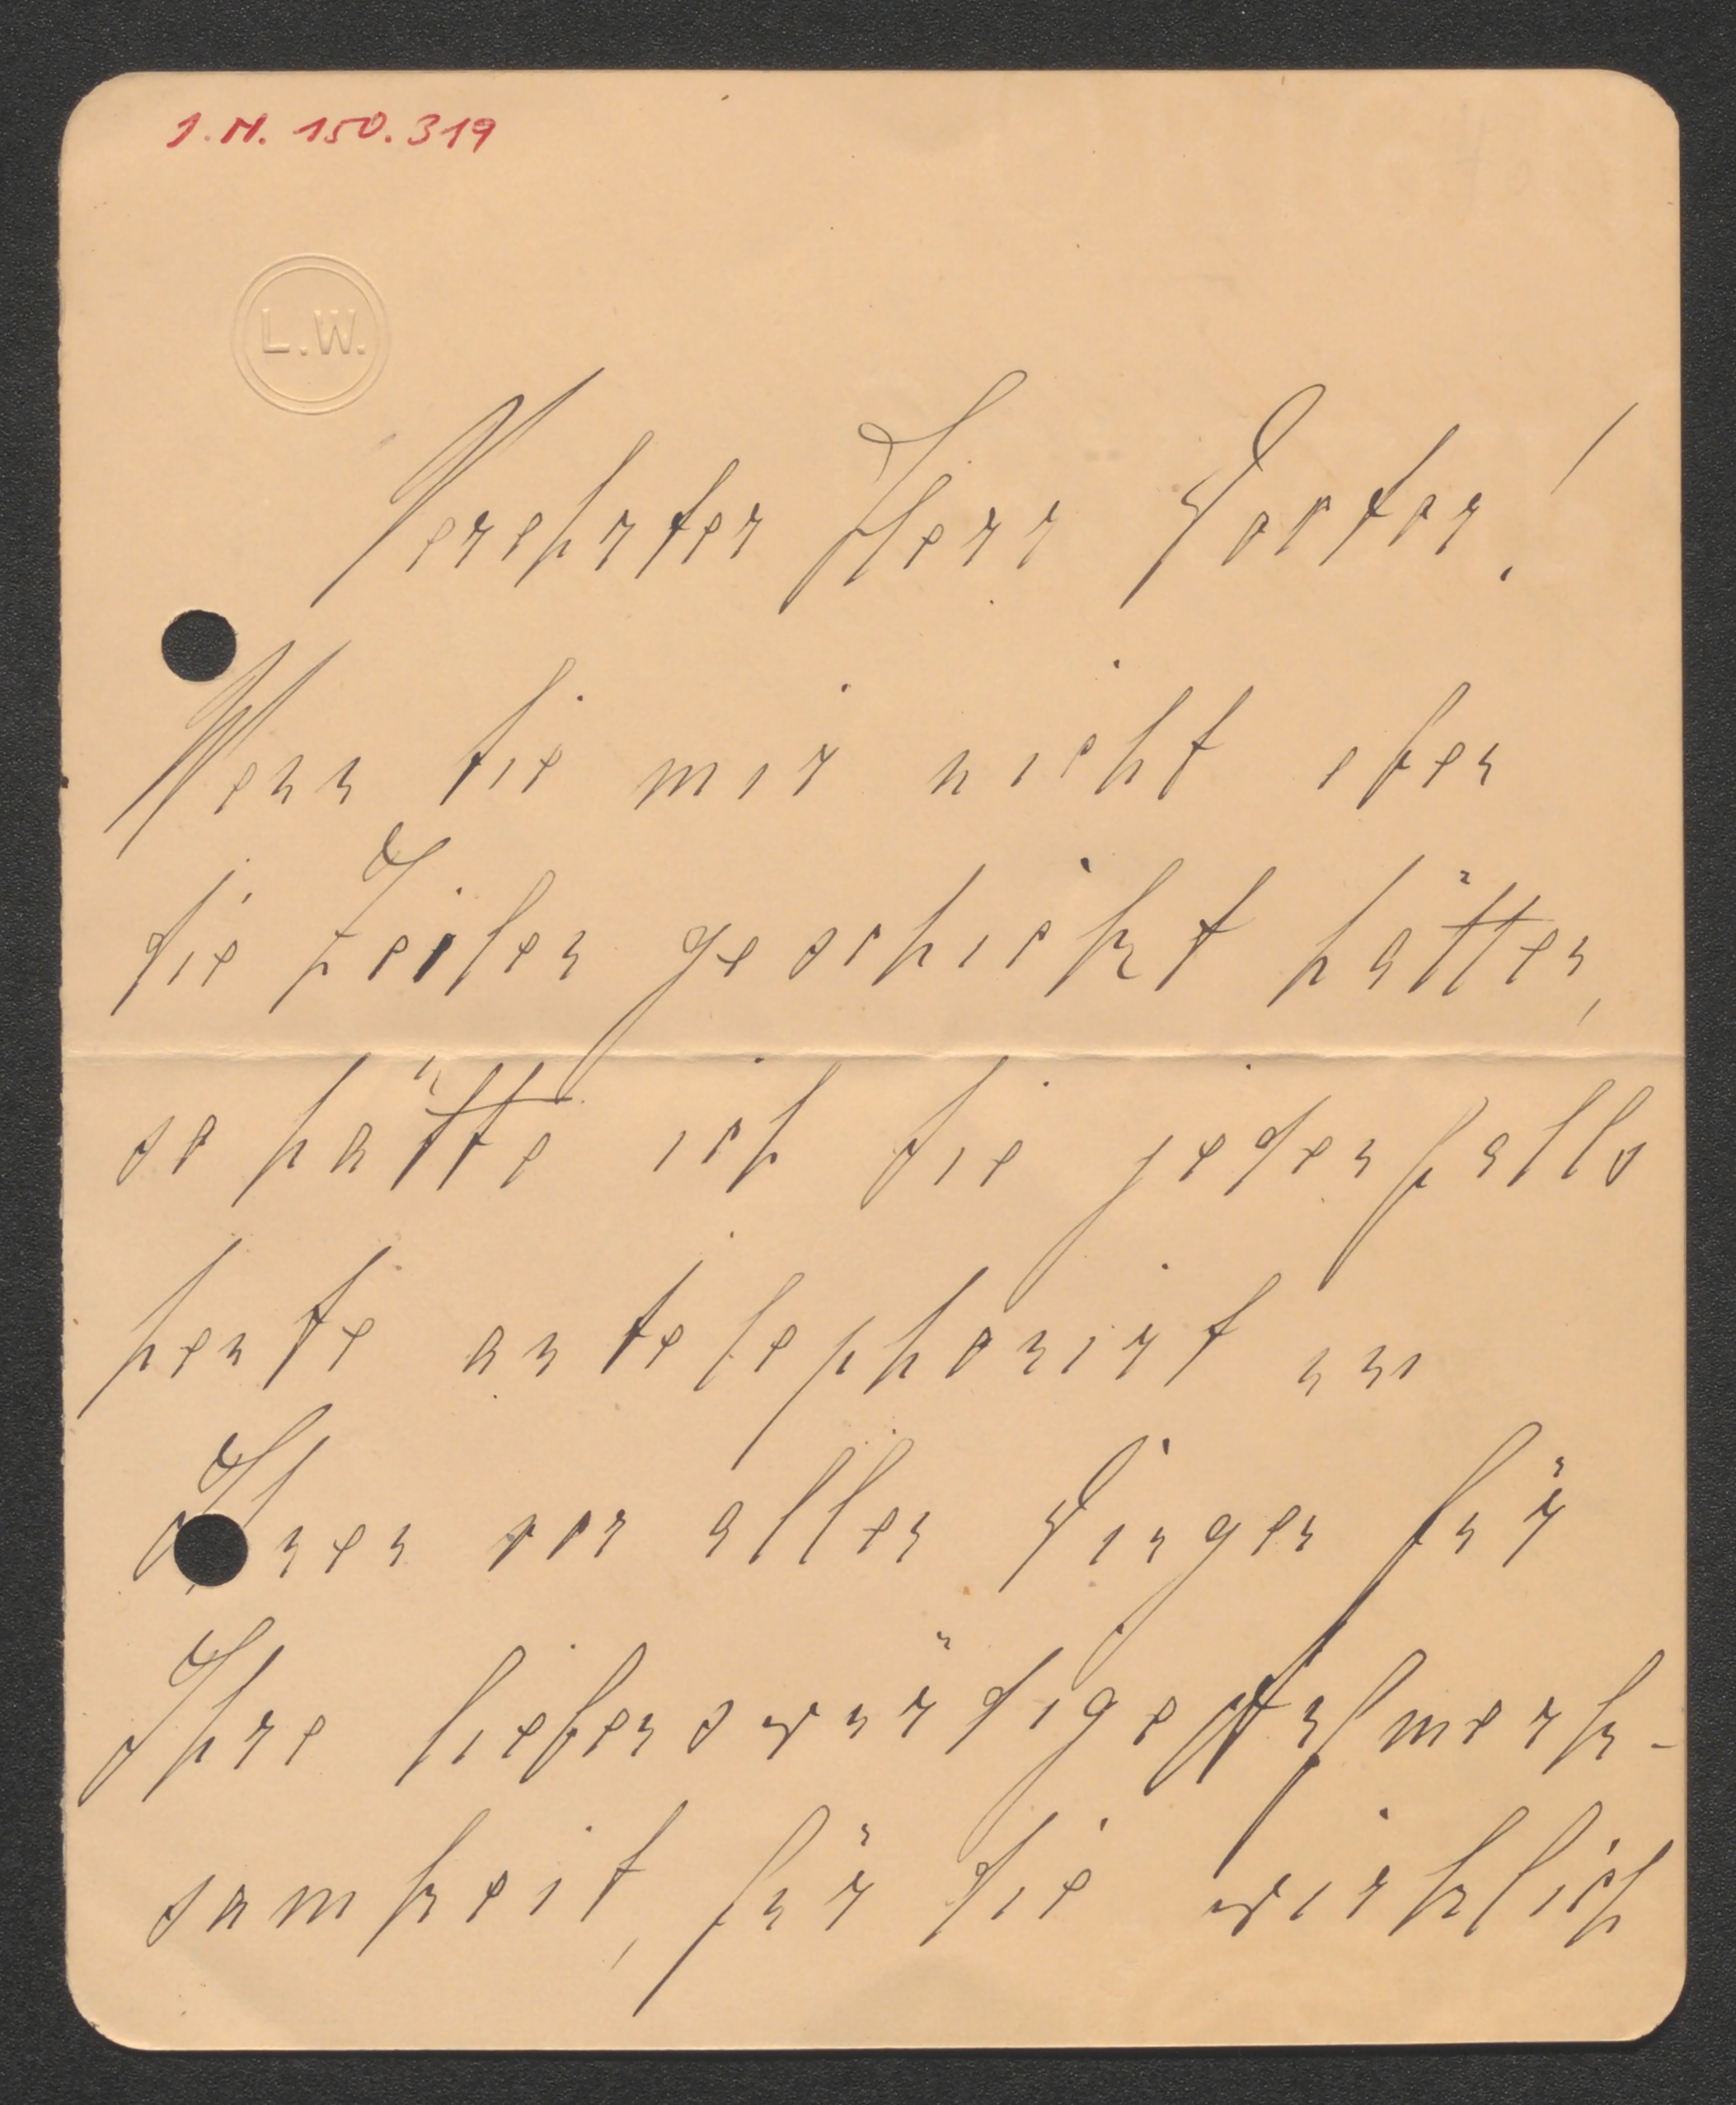 I.N. 150.319
L.W.
Verehrter Herr Doctor!
Wenn Sie mir nicht eben
die Zeilen geschickt hätten,
so hätte ich Sie jedenfalls
heute antelephonirt um
Ihnen vor allen Dingen für
Ihre liebenswürdige Aufmerk-
samkeit, für die wirklich